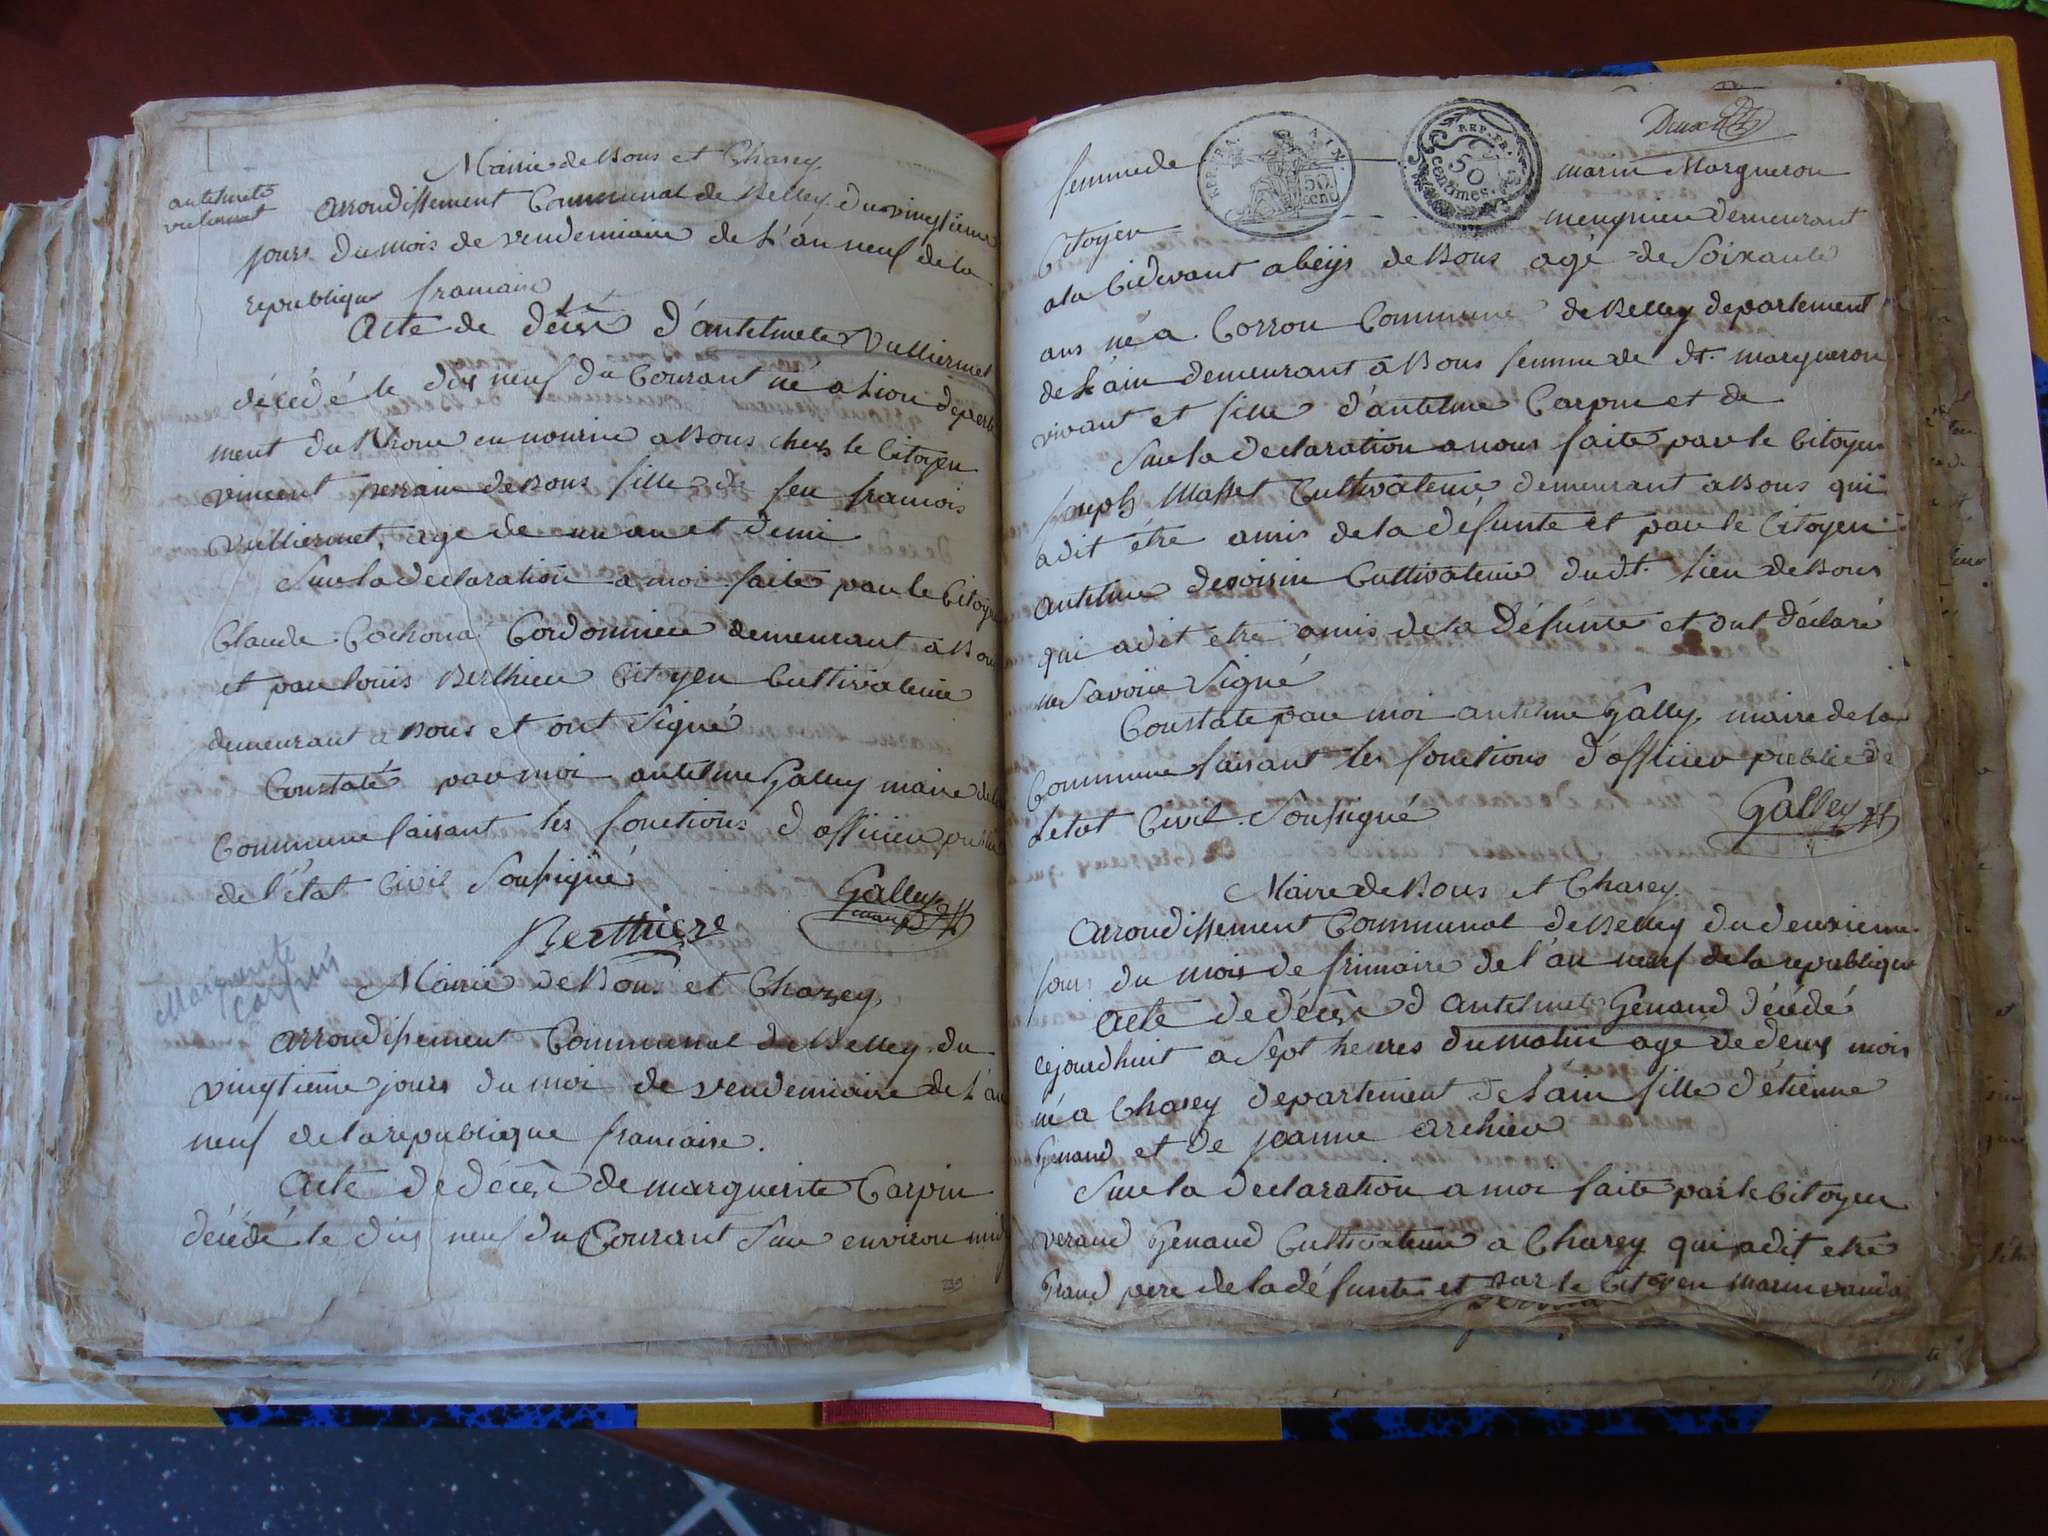 Mairie de Bons et Chasey
antelmete
vuliermet
arrondissement Communal de Belley du vingtieme
jours du mois de vendemiaire de L'an neuf de la
republique francaise
Acte de décès d'antelmete Vulliermet
décédé le dix neuf du Courant né a Lion departe
ment du Rhone en nourice a Bons chez le Citoyen
vincent perrain de Bons fille de feu francois
Vulliermet, age de un an et demi
Sur la declaration a moi faite par le Citoyen
Claude Cochona Cordonnier demeurant à Bons
et par louis Berthier Citoyen Cultivateur
demeurant a Bons et ont Signé
Constaté par moi antelme Galley maire de la
Commune faisant les fonctions d'officier public
de l'état Civil Soussigné
Galley
maire
Berthiere
Marguerite
Carpin
Mairie de Bons et Chazey,
arrondissement Communal de Belley du
vingtieme jours du moi de vendemiaire de L'an
neuf de la republique francaise.
Acte de décès de marguerite Carpin
décédé le dix neuf du Courant Sur environ midy
239
Deux
femme de marin Margueron
REP. FRA. AIN.
50 cent
REP. FR.
50 centimes.
Citoyen meugnier demeurant
a la Cidevant abeijs de Bons agé de Soixante
ans né a Corron Commune de Belley departement
de L'ain demeurant a Bons femme de dt. margueron
vivant et fille d'antelme Carpin et de
Sur la declaration a nous faite par le Citoyen
Joseph Masset Cultivateur demeurant a Bons qui
a dit être amis de la défunte et par le Citoyen
antelme devoisin Cultivateur du dt. Lieu de Bons
qui a dit etre amis de la défunte et ont déclaré
ne Savoir Signé
Constate par moi antelme Gally maire de la
Commune faisant les fonctions d'officier public de
Letat Civil Soussigné
Galley
Maire de Bons et Chasey
Arrondissement Communal de Belley du deuxieme
jours du mois de frimaire de l'an neuf de la republique
Acte de décès d'Antelmet Genand décédé
cejourdhuit a Sept heures du matin agé de deux mois
né a Chasey departement de Lain fille d'étienne
Genand et de jeanne archier
Sur la declaration a moi faite par le Citoyen
verand Genand Cultivateur a Chasey qui a dit etre
Grand pere de la défunte et par le Citoyen marin